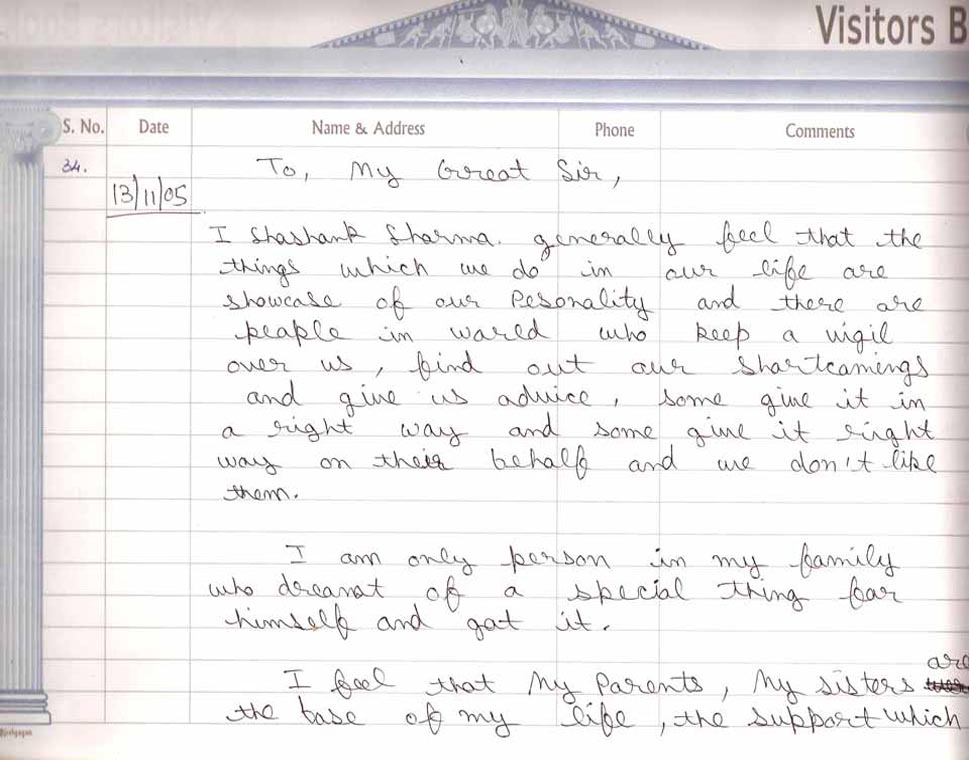 Visitors B
S. No. Date Name & Address Phone Comments
34. To, My Great Sir,
13/11/05
I Shashank Sharma. generally feel that the
things which we do in our life are
showcase of our Pesonality and there are
people in world who keep a vigil
over us, find out our shortcomings
and give us advice, some give it in
a right way and some give it right
way on their behalf and we don't like
them.
I am only person in my family
who dreamt of a special thing for
himself and got it.
are
I feel that My Parents, My sisters
the base of my life, the support which